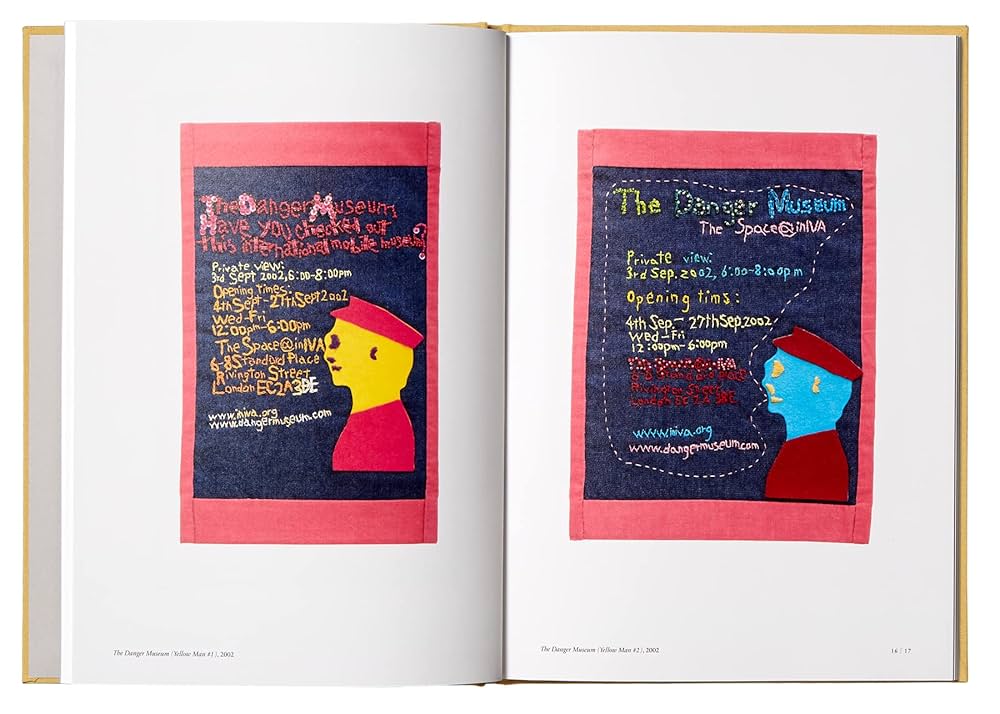 The Danger Museum
Have you checked out
this international mobile museum?
Private view:
3rd Sept 2002, 6:00-8:00pm
Opening times:
4th Sept - 27th Sept 2002
Wed-Fri
12:00pm-6:00pm
The Space@inIVA
6-8 Standard Place
Rivington Street
London EC2A 3BE
www.iniva.org
www.dangermuseum.com
The Danger Museum (Yellow Man #1), 2002
The Danger Museum
The Space@inIVA
Private view:
3rd Sep. 2002, 6:00-8:00pm
Opening tims:
4th Sep.- 27thSep.2002
Wed-Fri
12:00pm-6:00pm
The Space@inIVA
6-8 Standard Place
Rivington Street
London
3BE
www.iniva.org
www.dangermuseum.com
The Danger Museum (Yellow Man #2), 2002
16 | 17